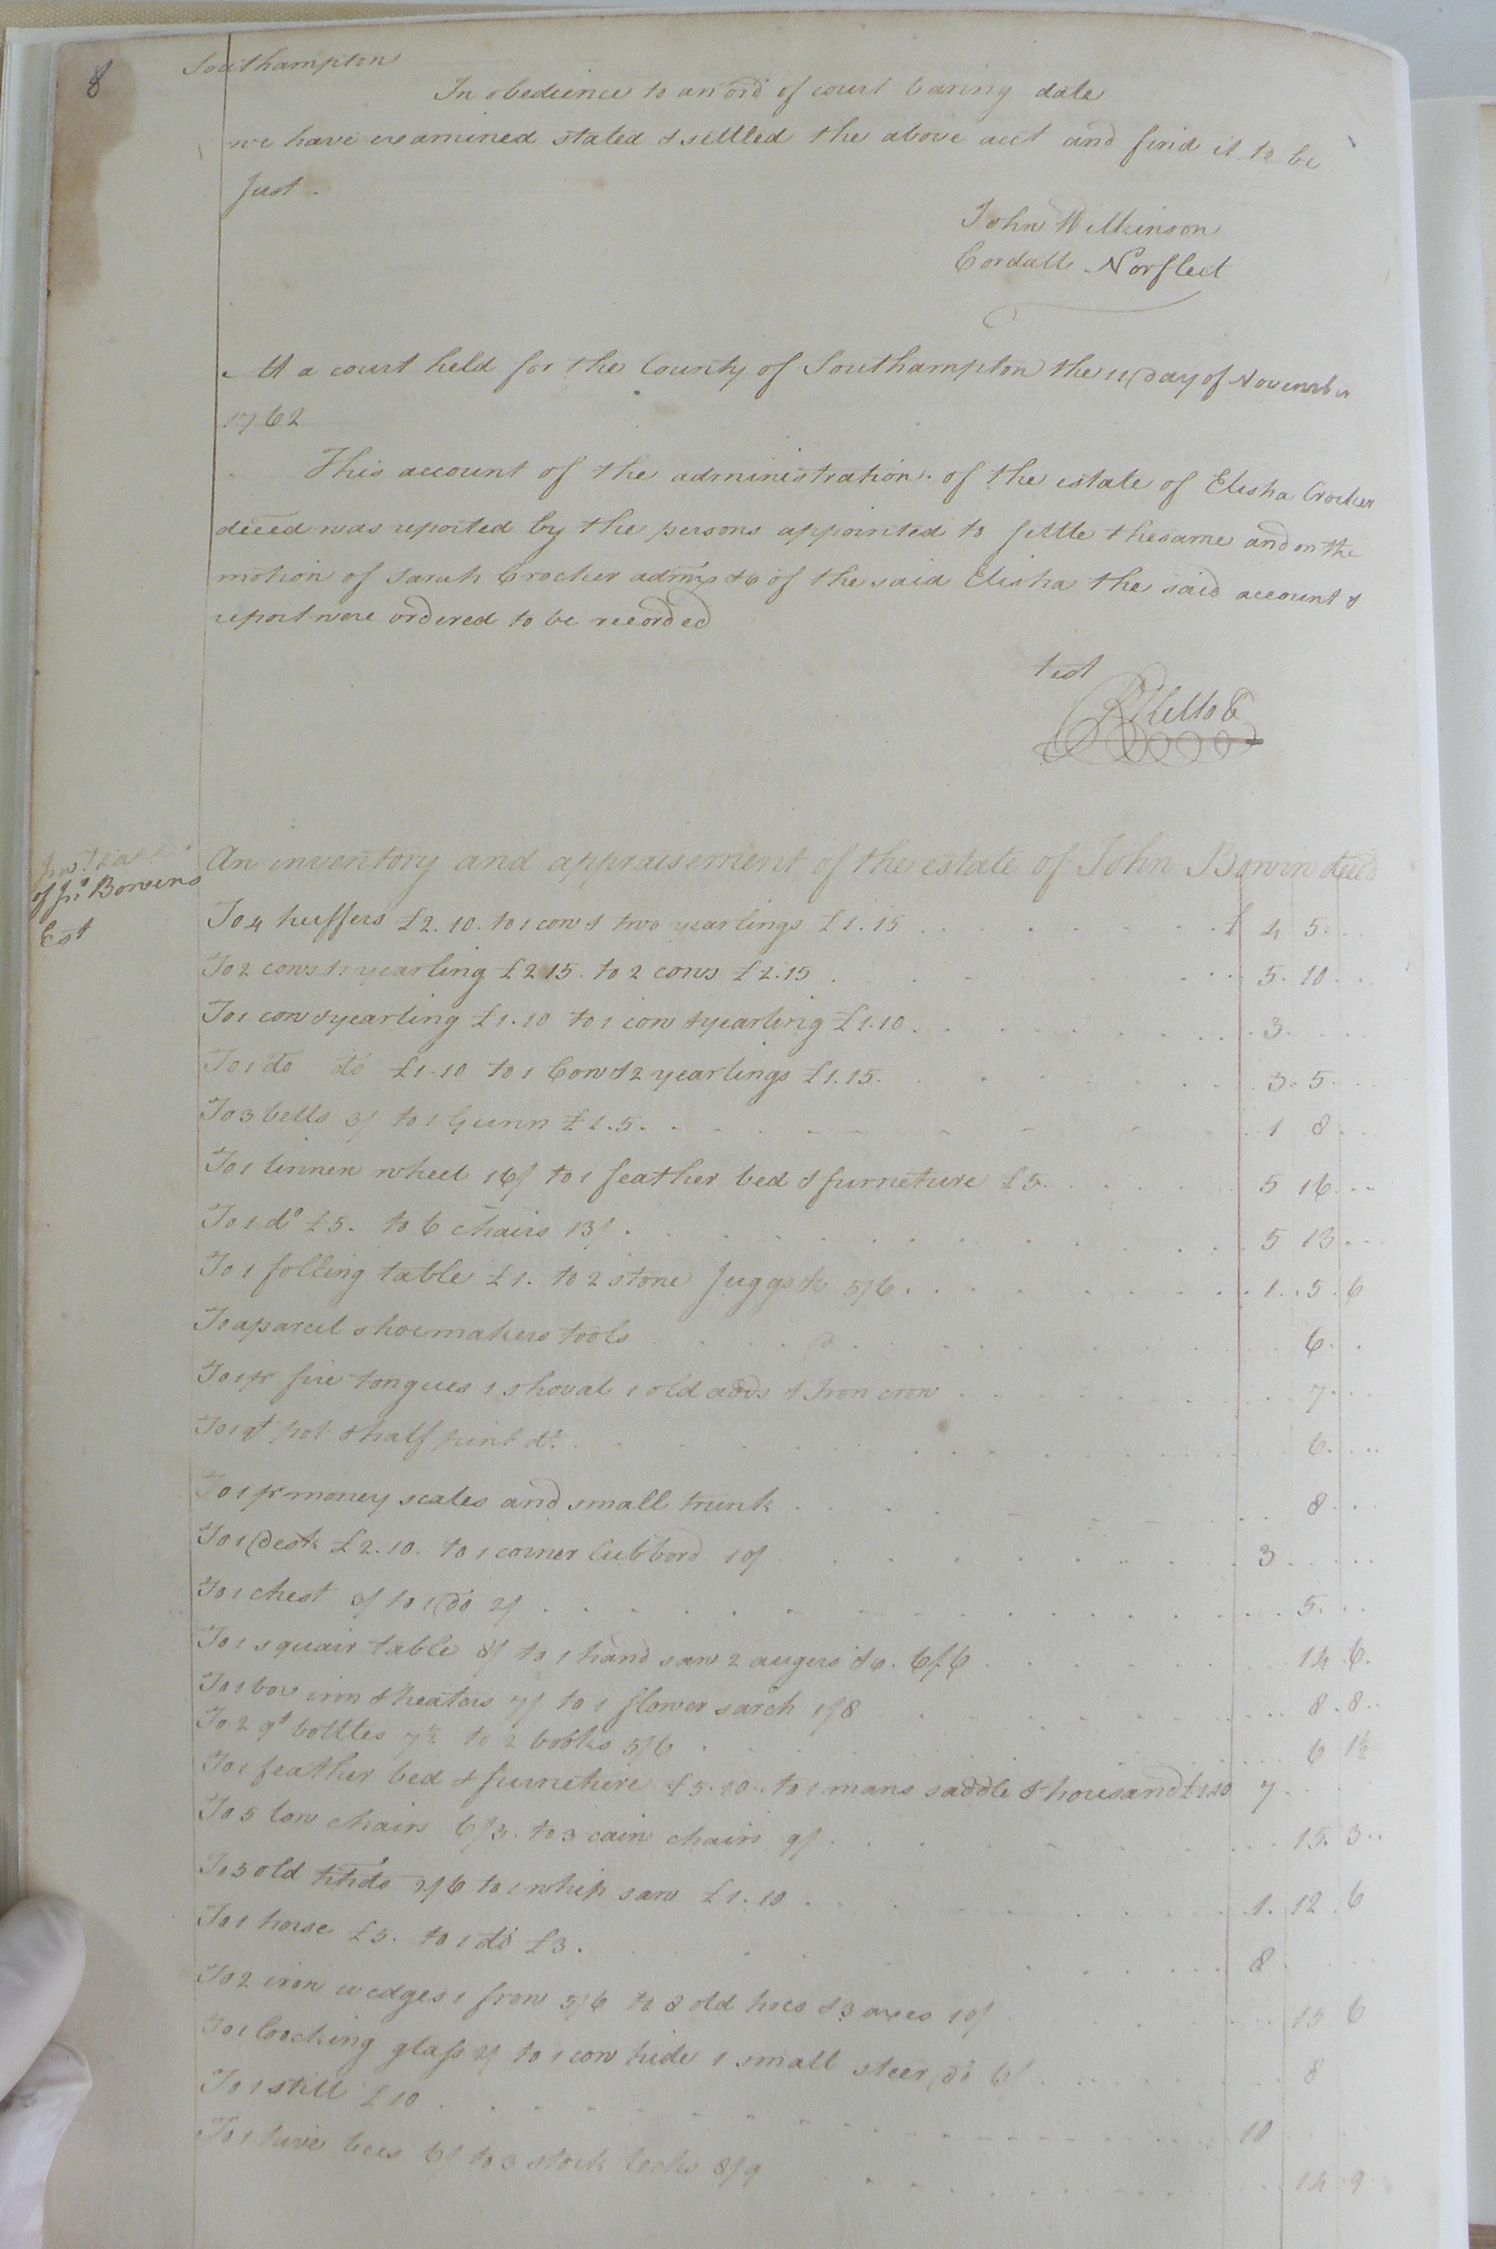 8
Southampton
In obedience to an ord of court baring date
we have examined stated & settled the above acct and find it to be
just.
John Wilkinson
Cordall Norfleet
At a court held for the County of Southampton the 11 day of November
1762
This account of the administration of the estate of Elisha Crocker
deced was reported by the persons appointed to settle the same and on the
motion of Sarah Crocker admx &c of the said Elisha the said account &
report were ordered to be recorded
test
An inventory and appraisement of the estate of John Bowin deced
of Jno Bowins
Est
To 4 heffers £2.10. to 1 cow & two yearlings £1.15 £ 4 5
To 2 cows & 1 yearling £2 15. to 2 cows £2.15 5. 10
To 1 cow & yearling £1.10 to 1 cow & yearling £1.10 3
To 1 do do £1.10 to 1 Cow & 2 yearlings £1.15. 3. 5
To 3 bells 3/ to 1 Gunn £1.5. 1 8
To 1 linnen wheel 16/ to 1 feather bed & furneture £5 5 16
To 1 do £5. to 6 chairs 13/. 5 13
To 1 folling table £1. to 2 stone juggs &c 5/6. 1. 5. 6
To a parcel shoemakers tools 6
To 1 pr fire tongues 1 shoval 1 old adds & Iron crow 7
To 1 qt pot & half pint do. 6
To 1 pr money scales and small trunk 8
To 1 desk £2.10. to 1 corner Cubbord 10/ 3
To 1 chest 3/ to 1 do 2/ 5
To 1 squair table 8/ to 1 hand saw 2 augers &c. 6/6 14 6
To 1 box iron & heaters 7/ to 1 flower sarch 1/8 8. 8
To 2 qt bottles 7½ to 2 books 5/6 6 1½
To 1 feather bed & furneture £5.10. to 1 mans saddle & housand £1.10 7
To 5 low chairs 6/3. to 3 cain chairs 9/ 15. 3
To 5 old hhds 2/6 to 1 whip saw £1.10 1. 12. 6
To 1 horse £5. to 1 do £3. 8
To 2 iron wedges 1 frow 5/6 to 8 old hoes & 3 axes 10/ 15 6
To 1 loocking glass 2/ to 1 cow hide 1 small steer do 6/ 8
To 1 still £10 10
To 1 hive bees 6/ to 3 stock locks 8/9 14 9